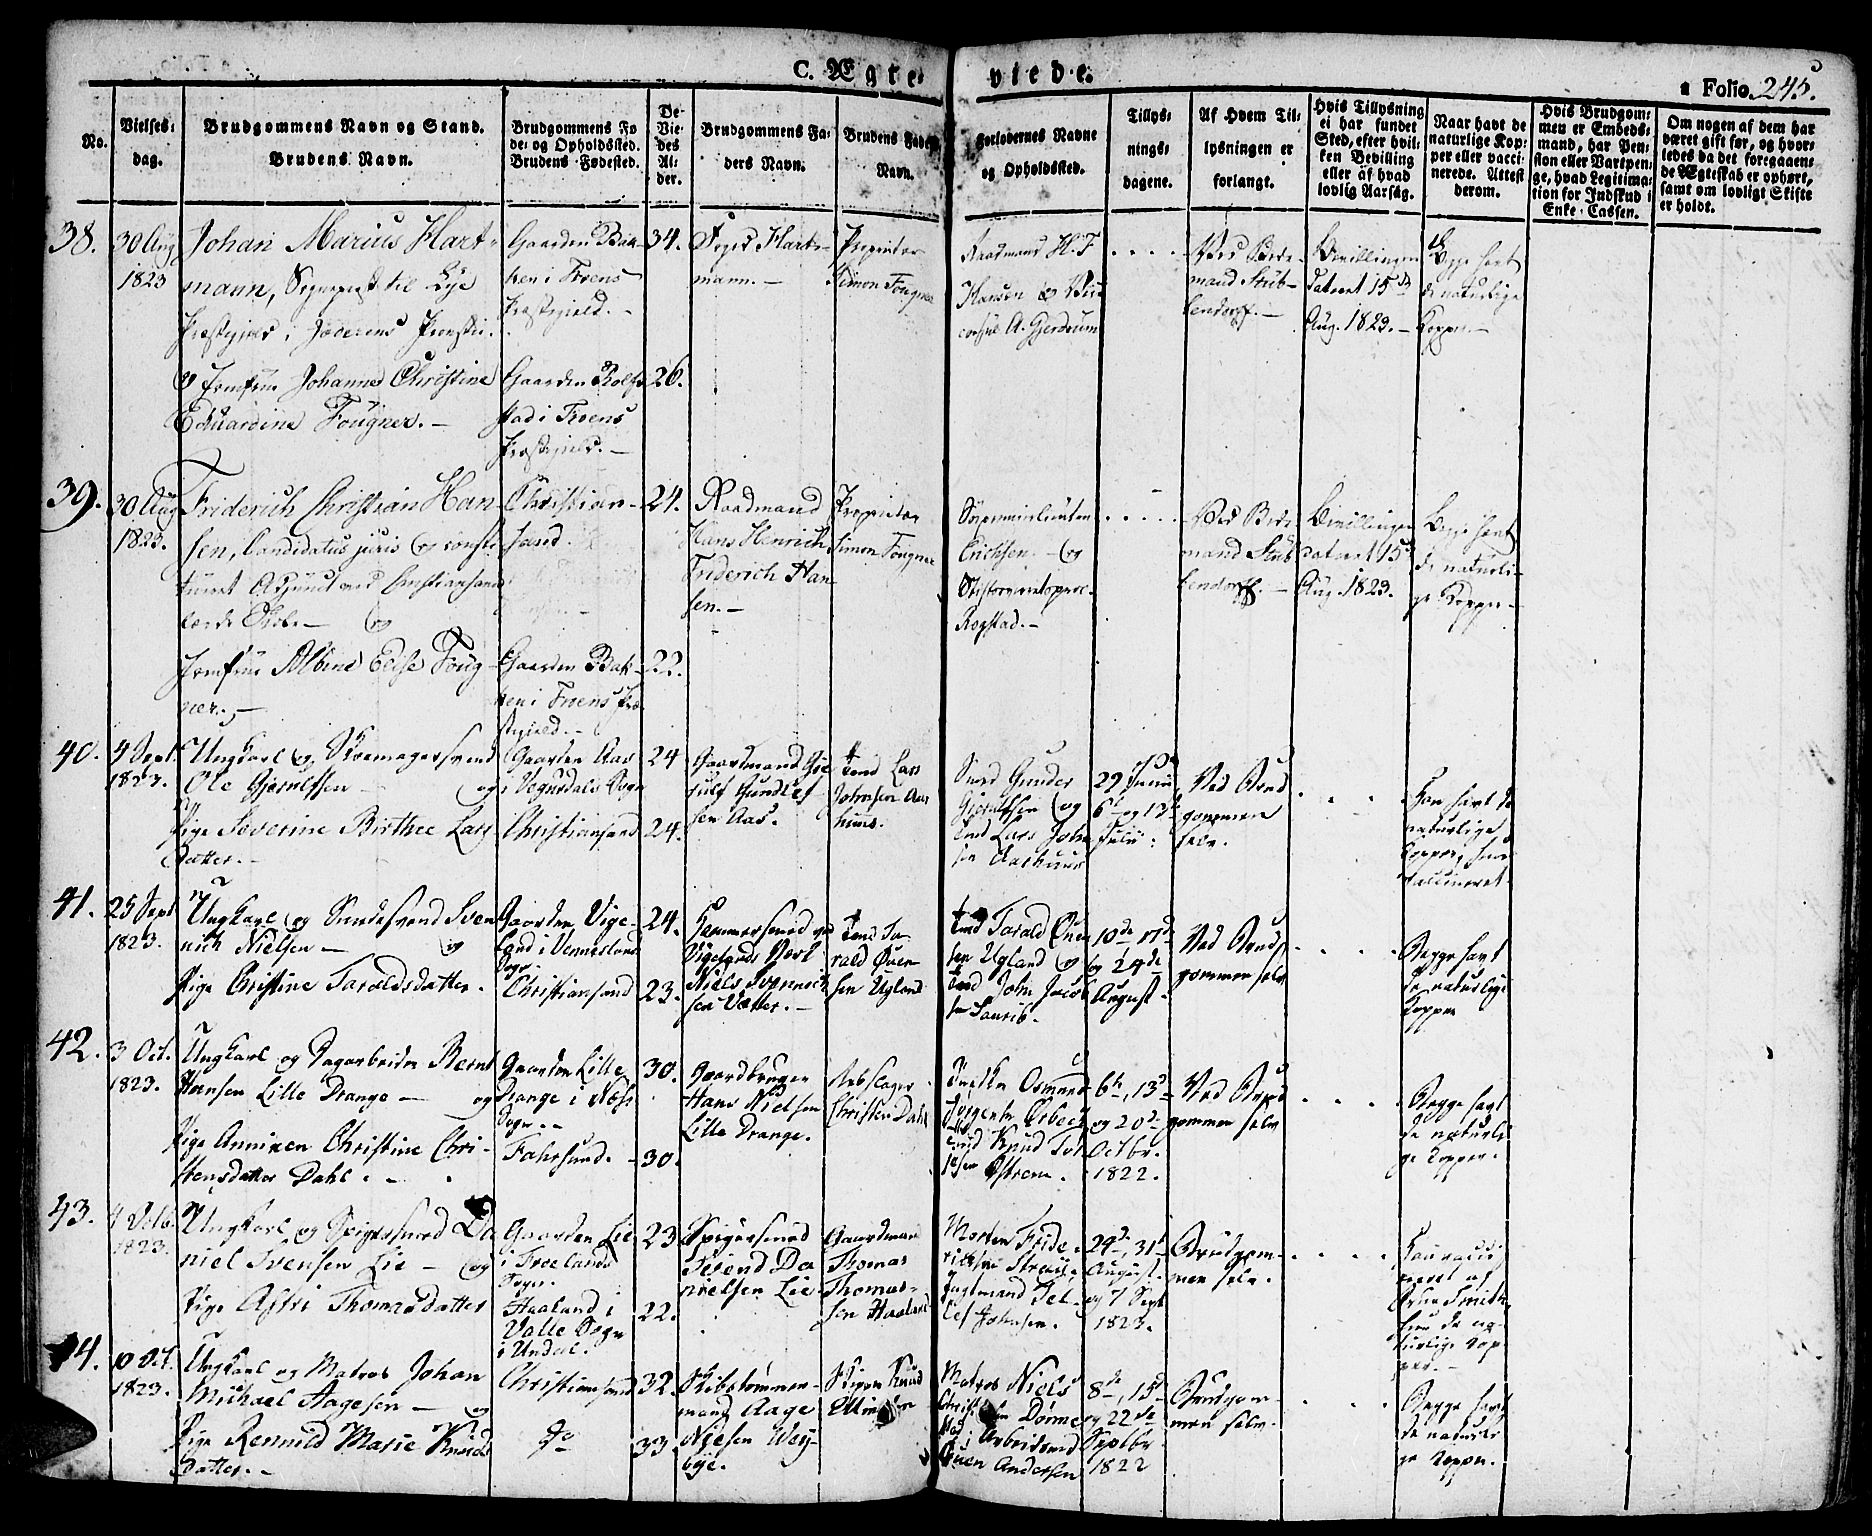 C. Ægte-
viede.
a Folio 245.
No.
Vielses-
dag.
Brudgommens Navn og Stand.
Brudens Navn.
Brudgommens Fø
de- og Opholdssted.
Brudens Fødested.
De
Vie-
des
Al-
der.
Brudgommens Fa-
ders Navn.
Brudens Faders
Navn.
Forlovernes Navne
og Opholdssted.
Tillys-
nings-
dagene.
Af Hvem Til-
lysningen er
forlangt.
Hvis Tillysning
ei har fundet
Sted, efter hvil-
ken Bevilling
eller af hvad
lovlig Aarsag.
Naar havt de
naturlige Kop-
per eller vacci-
nerede. Attest
derom.
Hvis Brudgom-
men er Embeds-
mand, har Pen-
sion eller Vartpen-
ge, hvad Legitima-
tion for Indskud i
Enke-Cassen.
Om nogen af dem har
været gift før, og hvor-
ledes da det foregaaen-
de Ægteskab er ophørt,
samt om lovligt Skifte
er holdt.
38.
30 Aug
1823
Johan Marius Hart-
mann, Sognepræst til Lye
Præstegield i Jæderens Provsti.
& Jomfrue Johanne Christine
Eduardine Fougner. -
Gaarden Bak-
ken i Froens
Præstegield. -
Gaarden Rolf-
stad i Froens
Præstegield. -
34.
26.
Hart-
mann. -
Proprietær
Simon Fougner
Raadmand H. F
Hansen & Vice
consul A. Gjerdrum
Ved Bede-
mand Stub-
bendorff. -
Bevillingen
dateret 15de
Aug. 1823. -
Begge havt
de naturlige
Kopper. -
39.
30 Aug
1823.
Friderich Christian Han
sen, Candidatus juris og consti
tueret Adjunct ved Christiansands
lærde Skole - og
Jomfrue Albine Elise Foug-
ner. -
Christian-
sand.
Gaarden Bak-
ken i Froens Præ-
stegield. -
24.
22.
Raadmand
Hans Henrich
Friderich Han-
sen. -
Proprietær
Simon Fougner
Erichsen - og
Rogstad. -
Ved Bede
mand Stub
bendorff. -
Bevillingen
dateret 15de
Aug. 1823.
Begge havt
de naturli-
ge Kopper -
40.
4 Sept.
1823.
Ungkarl og Skoemagersvend
Ole Gjerulfsen - og
Pige Severine Birthee Lars
Datter. -
Gaarden Aas
i Vegusdals Sogn
Christiansand
24
24.
Gaardmand Gie
rulf Gundlef
sen Aas.
Lars
Johnsen Aar
huus.
Svend Gunder
Gjerulfsen og
Lars John
sen Aarhuus
29 Junii
6te og 13de
Julii.
Ved Brud
gommen
selv.
Han havt de
naturlige
Kopper, hun
vaccineret.
41.
25 Sept
1823.
Ungkarl og Smedesvend Sven
nich Nielsen - og
Pige Christine Taroldsdatter.
Gaarden Vige-
land i Vennesland
Sogn
Christiansand
24.
23.
Hammersmed ved
Vigelands Værk
Niels Svennich
sen Vatter. -
Ta-
rald Øven
sen Ugland
Tarald Øven
sen Ugland og
John Jacob
sen
10de 17de
og 24de
August.
Ved Brud-
gommen selv
Begge havt
de naturlige
Kopper
42.
3 Oct.
1823.
Ungkarl og Dagarbeider Bernt
Hansen Lille Drange - og
Pige Anniken Christine Chri-
stensdatter Dahl. -
Gaarden Lille
Drange i Næs
Sogn. -
Fahrsund. -
30.
30.
Gaardbruger
Hans Nielsen
Lille Drange.
Rebslager
Christen Dahl
Osmund
Knud Tor
Østrem.
6te, 13de
og 20de
Octbr.
1822.
Ved Brud
gommen selv
Begge havt
de naturli-
ge Kopper.
43.
4 Octb.
1823.
Ungkarl og Spigersmed Da
niel Svensen Lie - og
Pige Astri Thomasdatter
Gaarden Lie
i Froelands
Sogn.
Haaland i
Valle Sogn
i Undal.
23
22.
Spigersmed
Svend Da
nielsen Lie
Gaardmand
Thomas
Thomas-
sen Haaland
Morten Fride-
richsen
Jel-
lef Johnsen.
24de, 31te
August.
og 7 Sept
1823.
Brudgom-
men selv.
Han vacci
neret af
Smith,
hun de na-
turlige Kop
per. -
44.
10 Oct.
1823.
Ungkarl og Matros Johan
Michael Aagesen - og
Pige Rennild Marie Knuds
Datter. -
Christiansand
Do
32.
33.
Skibstømmer-
mand Aage
Nielsen Wey-
bye.
Skipper Knud
Matros Niels
Dønne
Arbeidsmd
Øven Andersen
8de, 15de
og 22de
Septbr
1822
Brudgom-
men selv.
Begge havt
de naturli
ge Kopper.